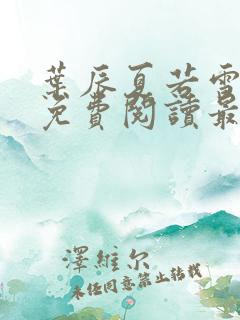 葉辰夏若雪
免費閱讀最
澤維尔
未经同意禁止转载